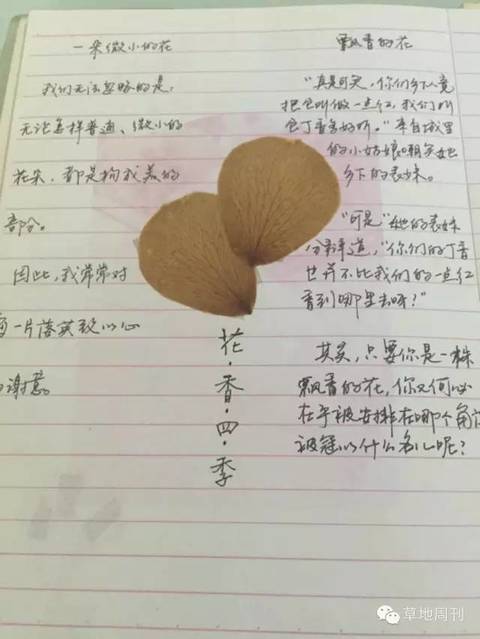 一朵微小的花
我们无法忽略的是,
无论怎样普通、微小的
花朵,都是构成美的
部分。
因此,我常常对
一片落英致以心
谢意。
花·香·四·季
飘香的花
"真是可笑,你们乡下人竟
把它叫做一点红,我们叫
它丁香多好听。"来自城里
的小姑娘嘲笑她
乡下的表妹。
"可是"她的表妹
分辩道,"你们的丁香
也并不比我们的一点红
香到哪里去呀?"
其实,只要你是一株
飘香的花,你又何必
在乎被安排在哪个角
被冠以什么名儿呢?
草地周刊